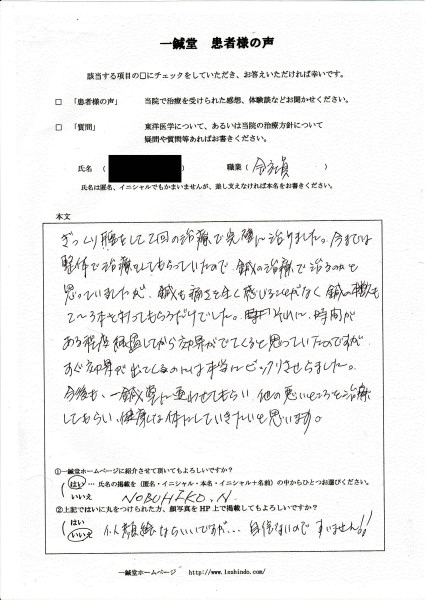 一鍼堂　患者様の声
該当する項目の□にチェックをしていただき、お答えいただければ幸いです。
□　「患者様の声」　当院で治療を受けられた感想、体験談などお聞かせください。
□　「質問」　東洋医学について、あるいは当院の治療方針について
疑問や質問等あればお書きください。
氏名　（　　　）　職業（　会社員　）
氏名は匿名、イニシャルでもかまいませんが、差し支えなければ本名をお書きください。
本文
ぎっくり腰をして2回の治療で完璧に治りました。今までは
整体で治療をしてもらっていたので、鍼の治療で治るのかと
思っていましたが、鍼も痛さを全く感じることがなく鍼の本数も
2〜3本を打ってもらうだけでした。それに、時間が
ある程度経過してから効果がでてくると思っていたのですが
すぐ効果が出てくるのには本当にビックリさせらました。
今後も、一鍼堂に通わせてもらい、他の悪いところを治療
してもらい、健康な体にしていきたいと思います。
①一鍼堂ホームページに紹介させて頂いてもよろしいですか？
はい … 氏名の掲載を（匿名・イニシャル・本名・イニシャル＋名前）の中からひとつお選びください。
いいえ　NOBUHIKO.N
②上記ではいに丸をつけられた方、顔写真をHP上で掲載してもよろしいですか？
はい
いいえ　似顔絵ならいいですが… 自信ないので すいません!!
一鍼堂ホームページ　http://www.1sshindo.com/